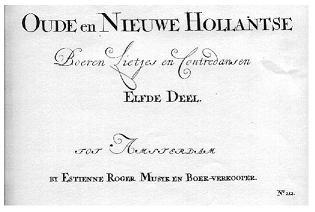 OUDE en NIEUWE HOLLANTSE
Boeren Lietjes en Contredansen
ELFDE DEEL.
TOT AMSTERDAM
BY ESTIENNE ROGER MUSIK EN BOEK-VERKOOPER.
No. 212.